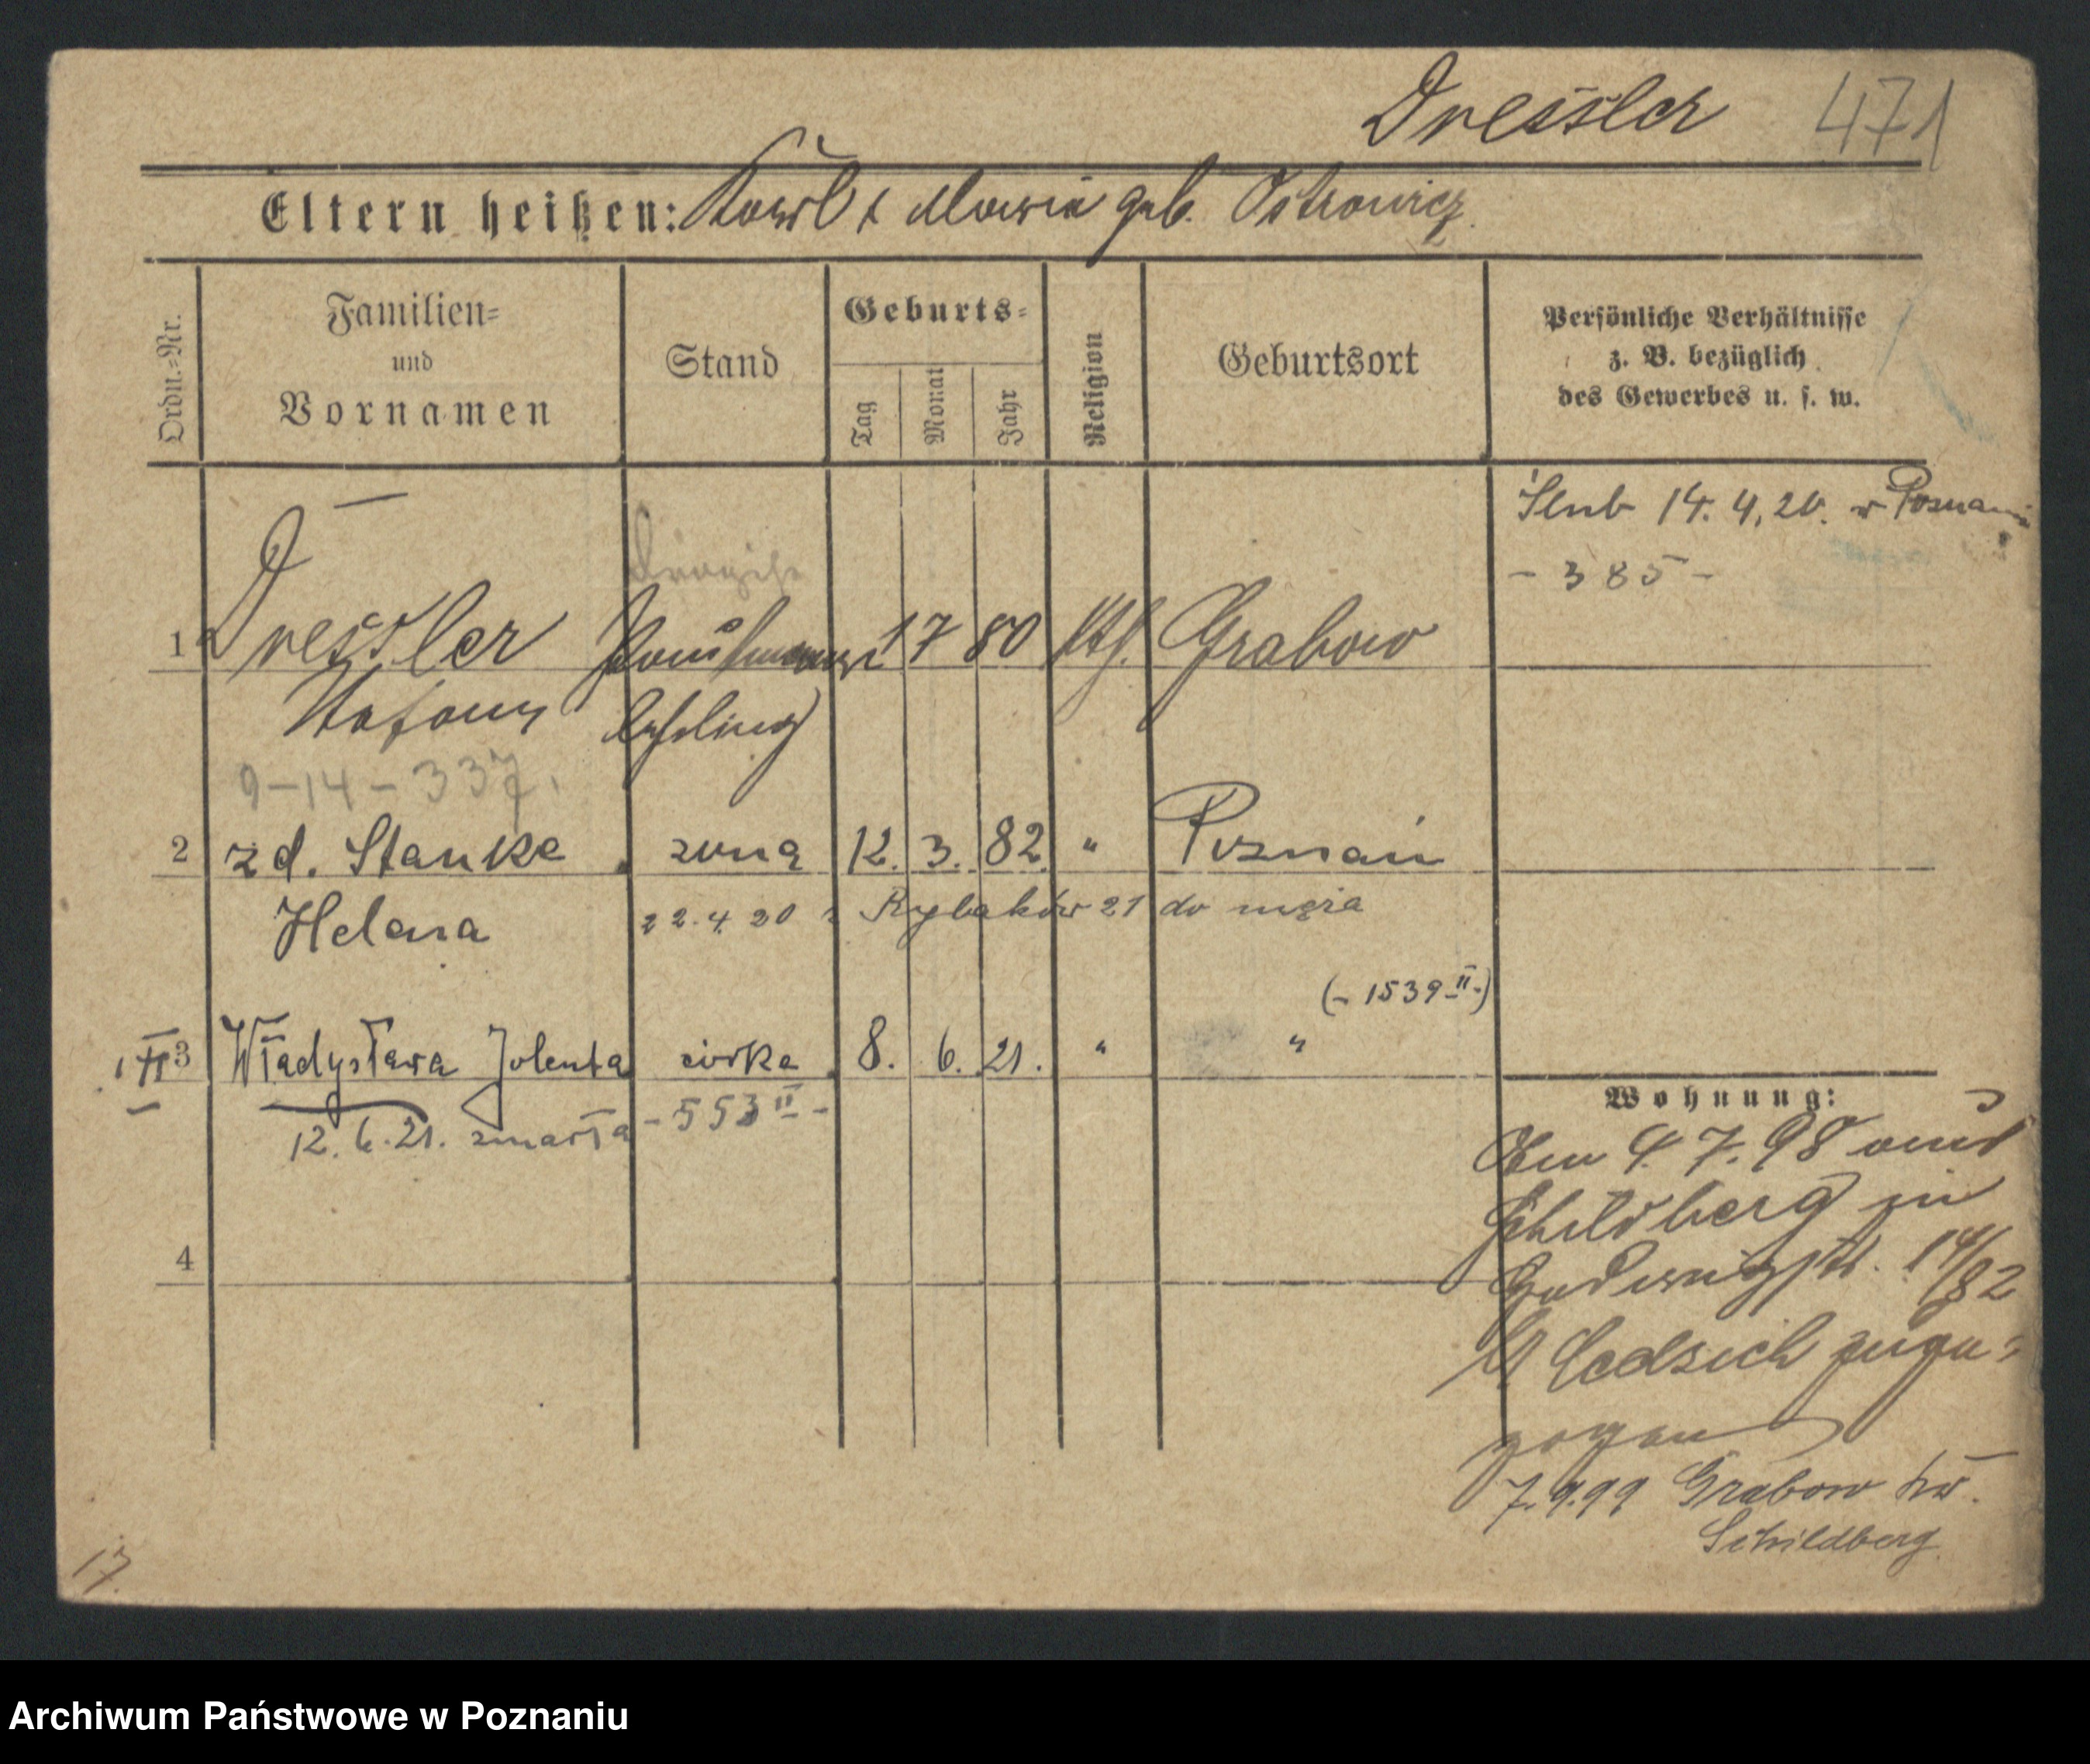 Dressler 471
Eltern heißen: Karl & Maria geb. Ostrowicz.
Ordn.-Nr.
Familien-
und
Vornamen
Stand
Geburts-
Tag
Monat
Jahr
Religion
Geburtsort
Persönliche Verhältnisse
z. B. bezüglich
des Gewerbes u. s. w.
Ślub 14. 4. 20. w Poznaniu
- 385 -
1 Dressler 7 80 kth. Grabow
Stefan
9-14-337.
2 zd. Stanke żona 12. 3. 82 " Poznań
Helena 22.4.20 z Rybaków 21 do męża
(- 1539 II -)
3 Władysława Jolenta córka 8. 6. 21. " "
12. 6. 21. zmarła - 553 II -
4
Wohnung:
Am 4. 7. 98 aus
Schildberg in
14/82
b/ Cedzich zuge-
zogen
7.9.99 Grabow Kr.
Schildberg
17.
Archiwum Państwowe w Poznaniu